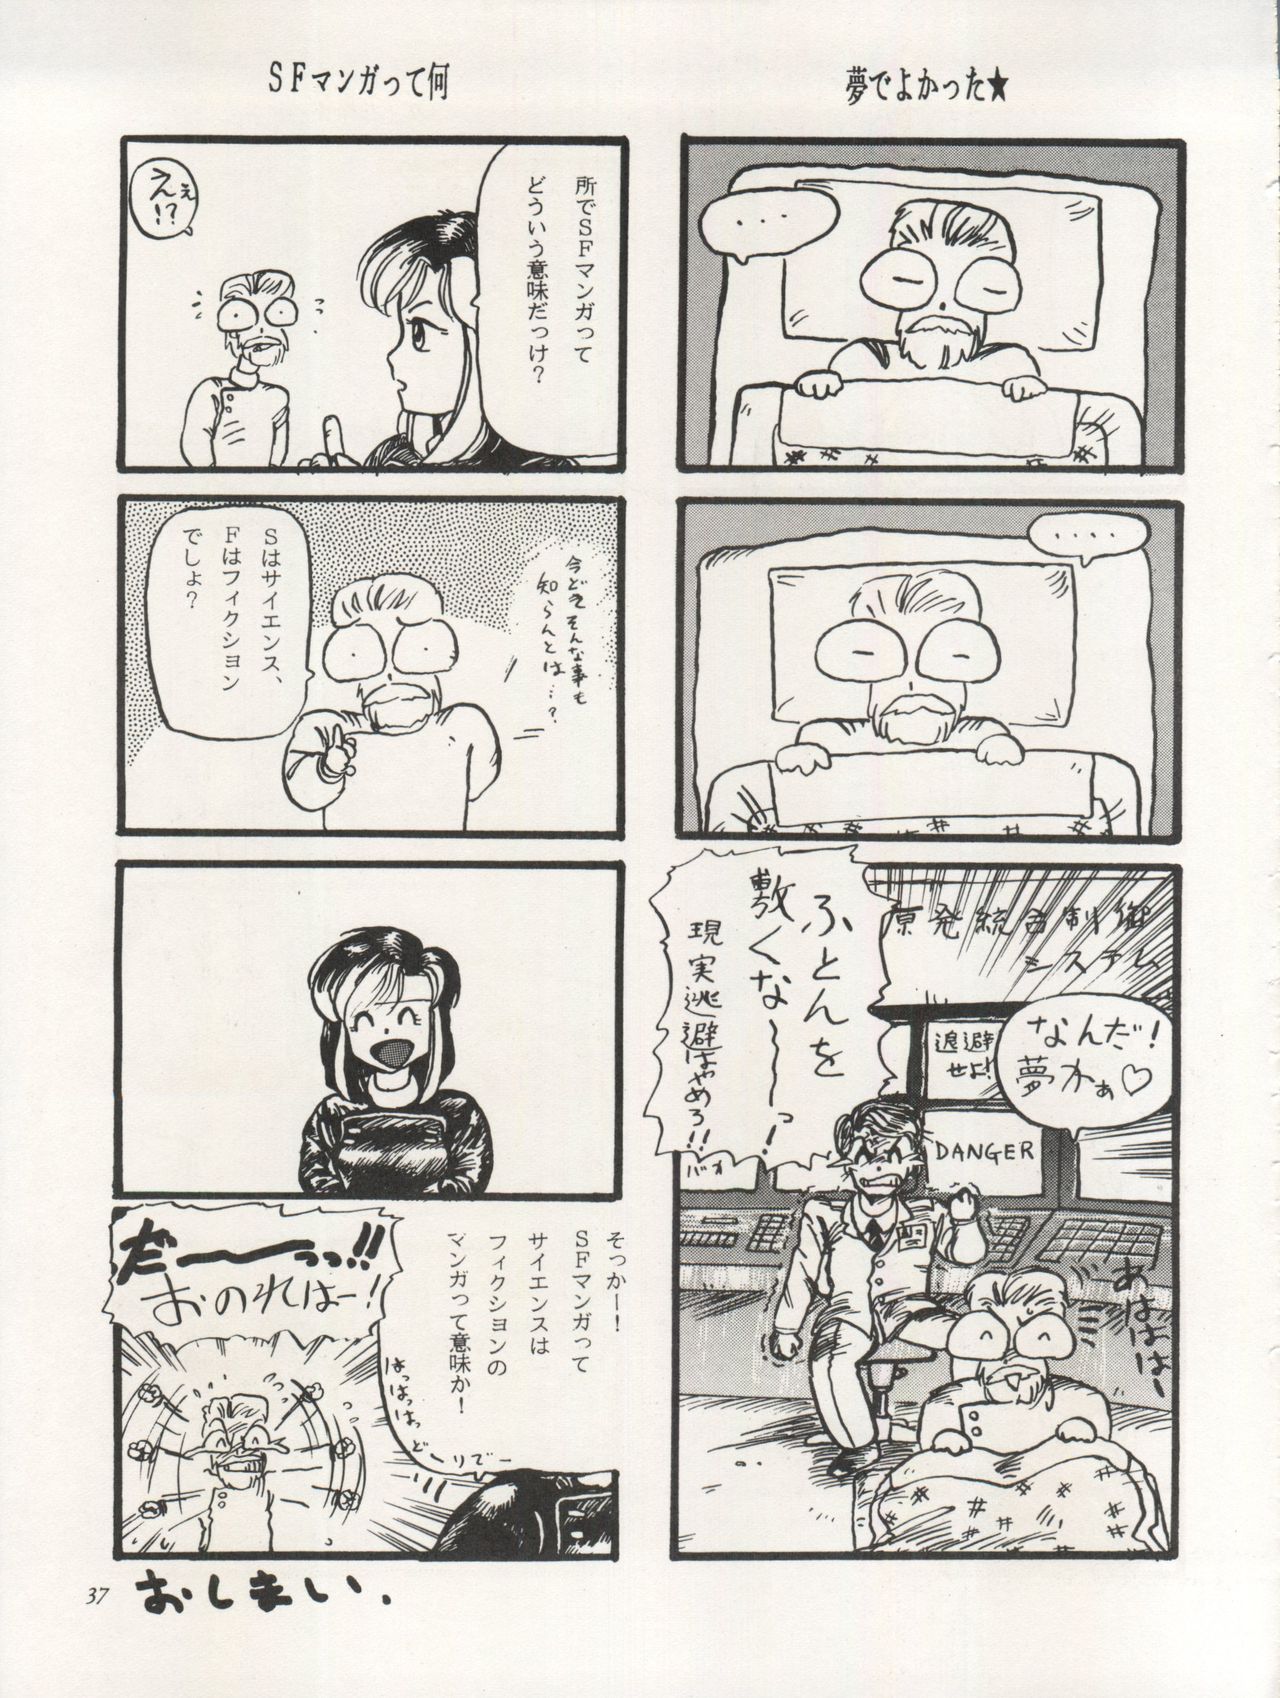 夢でよかった★
・・・・
・・・・
原発統合制御
システム
なんだ!
夢かぁ♡
退避
せよ!
DANGER
ふとんを
敷くな〜〜っ!
現実逃避はやめろ!!
バキ
あははは〜
SFマンガって何
所でSFマンガって
どういう意味だっけ?
えぇ
!?
今どきそんな事も
知らんとは…?
Sはサイエンス、
Fはフィクション
でしょ?
そっかー!
SFマンガって
サイエンスは
フィクションの
マンガって意味か!
はっはっはっ
どーりでー
だーーっっ!!
おのれはー!
おしまい.
37